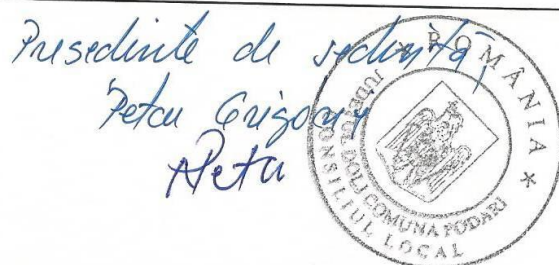 Președinte de ședință,
Petcu Grigorie
Petcu
* ROMÂNIA *
JUDEȚUL DOLJ COMUNA PODARI
CONSILIUL LOCAL